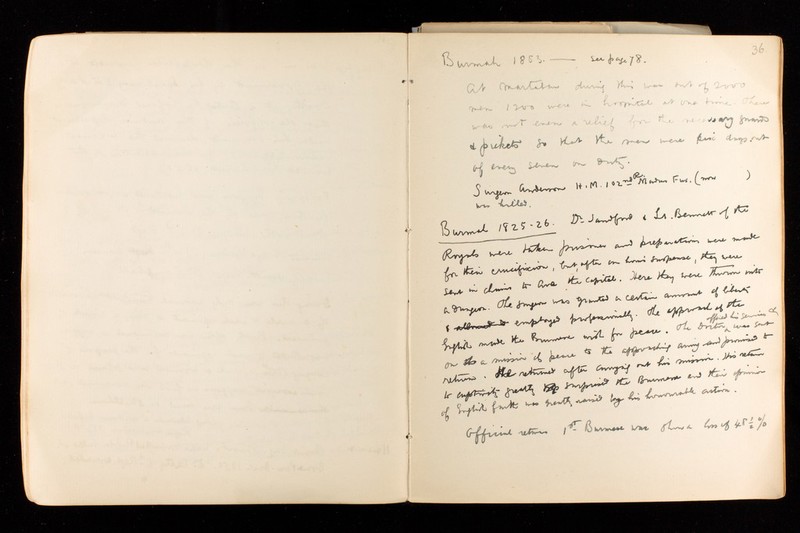 36
Burmah 1853. — see page 78.
At Martaban during this war out of 2000
men 1200 were in hospital at one time. There
was not even a relief for the necessary guards
& pickets so that the men were five days out
of every seven on duty.
Surgeon Anderson H.M. 102nd Rl. Madras Fus. (now )
was killed.
Burmah 1825-26. Dr Sandford & Lt. Bennett of the
Royals were taken prisoners and preparations were made
for their crucifixion, but, after an hours suspense, they were
sent in chains to Ava the capital. Here they were thrown into
a dungeon. The surgeon was granted a certain amount of liberty
& allowed to employed professionally. The approach of the
English made the Burmese wish for peace. The Doctor offered his services & was sent
on a mission of peace to the approaching army and promised to
return. He returned after carrying out his mission. His return
to captivity greatly surprised the Burmese and their opinion
of English faith was greatly raised by his honourable action.
Official return 1st Burmese war show a loss of 48 ½ %